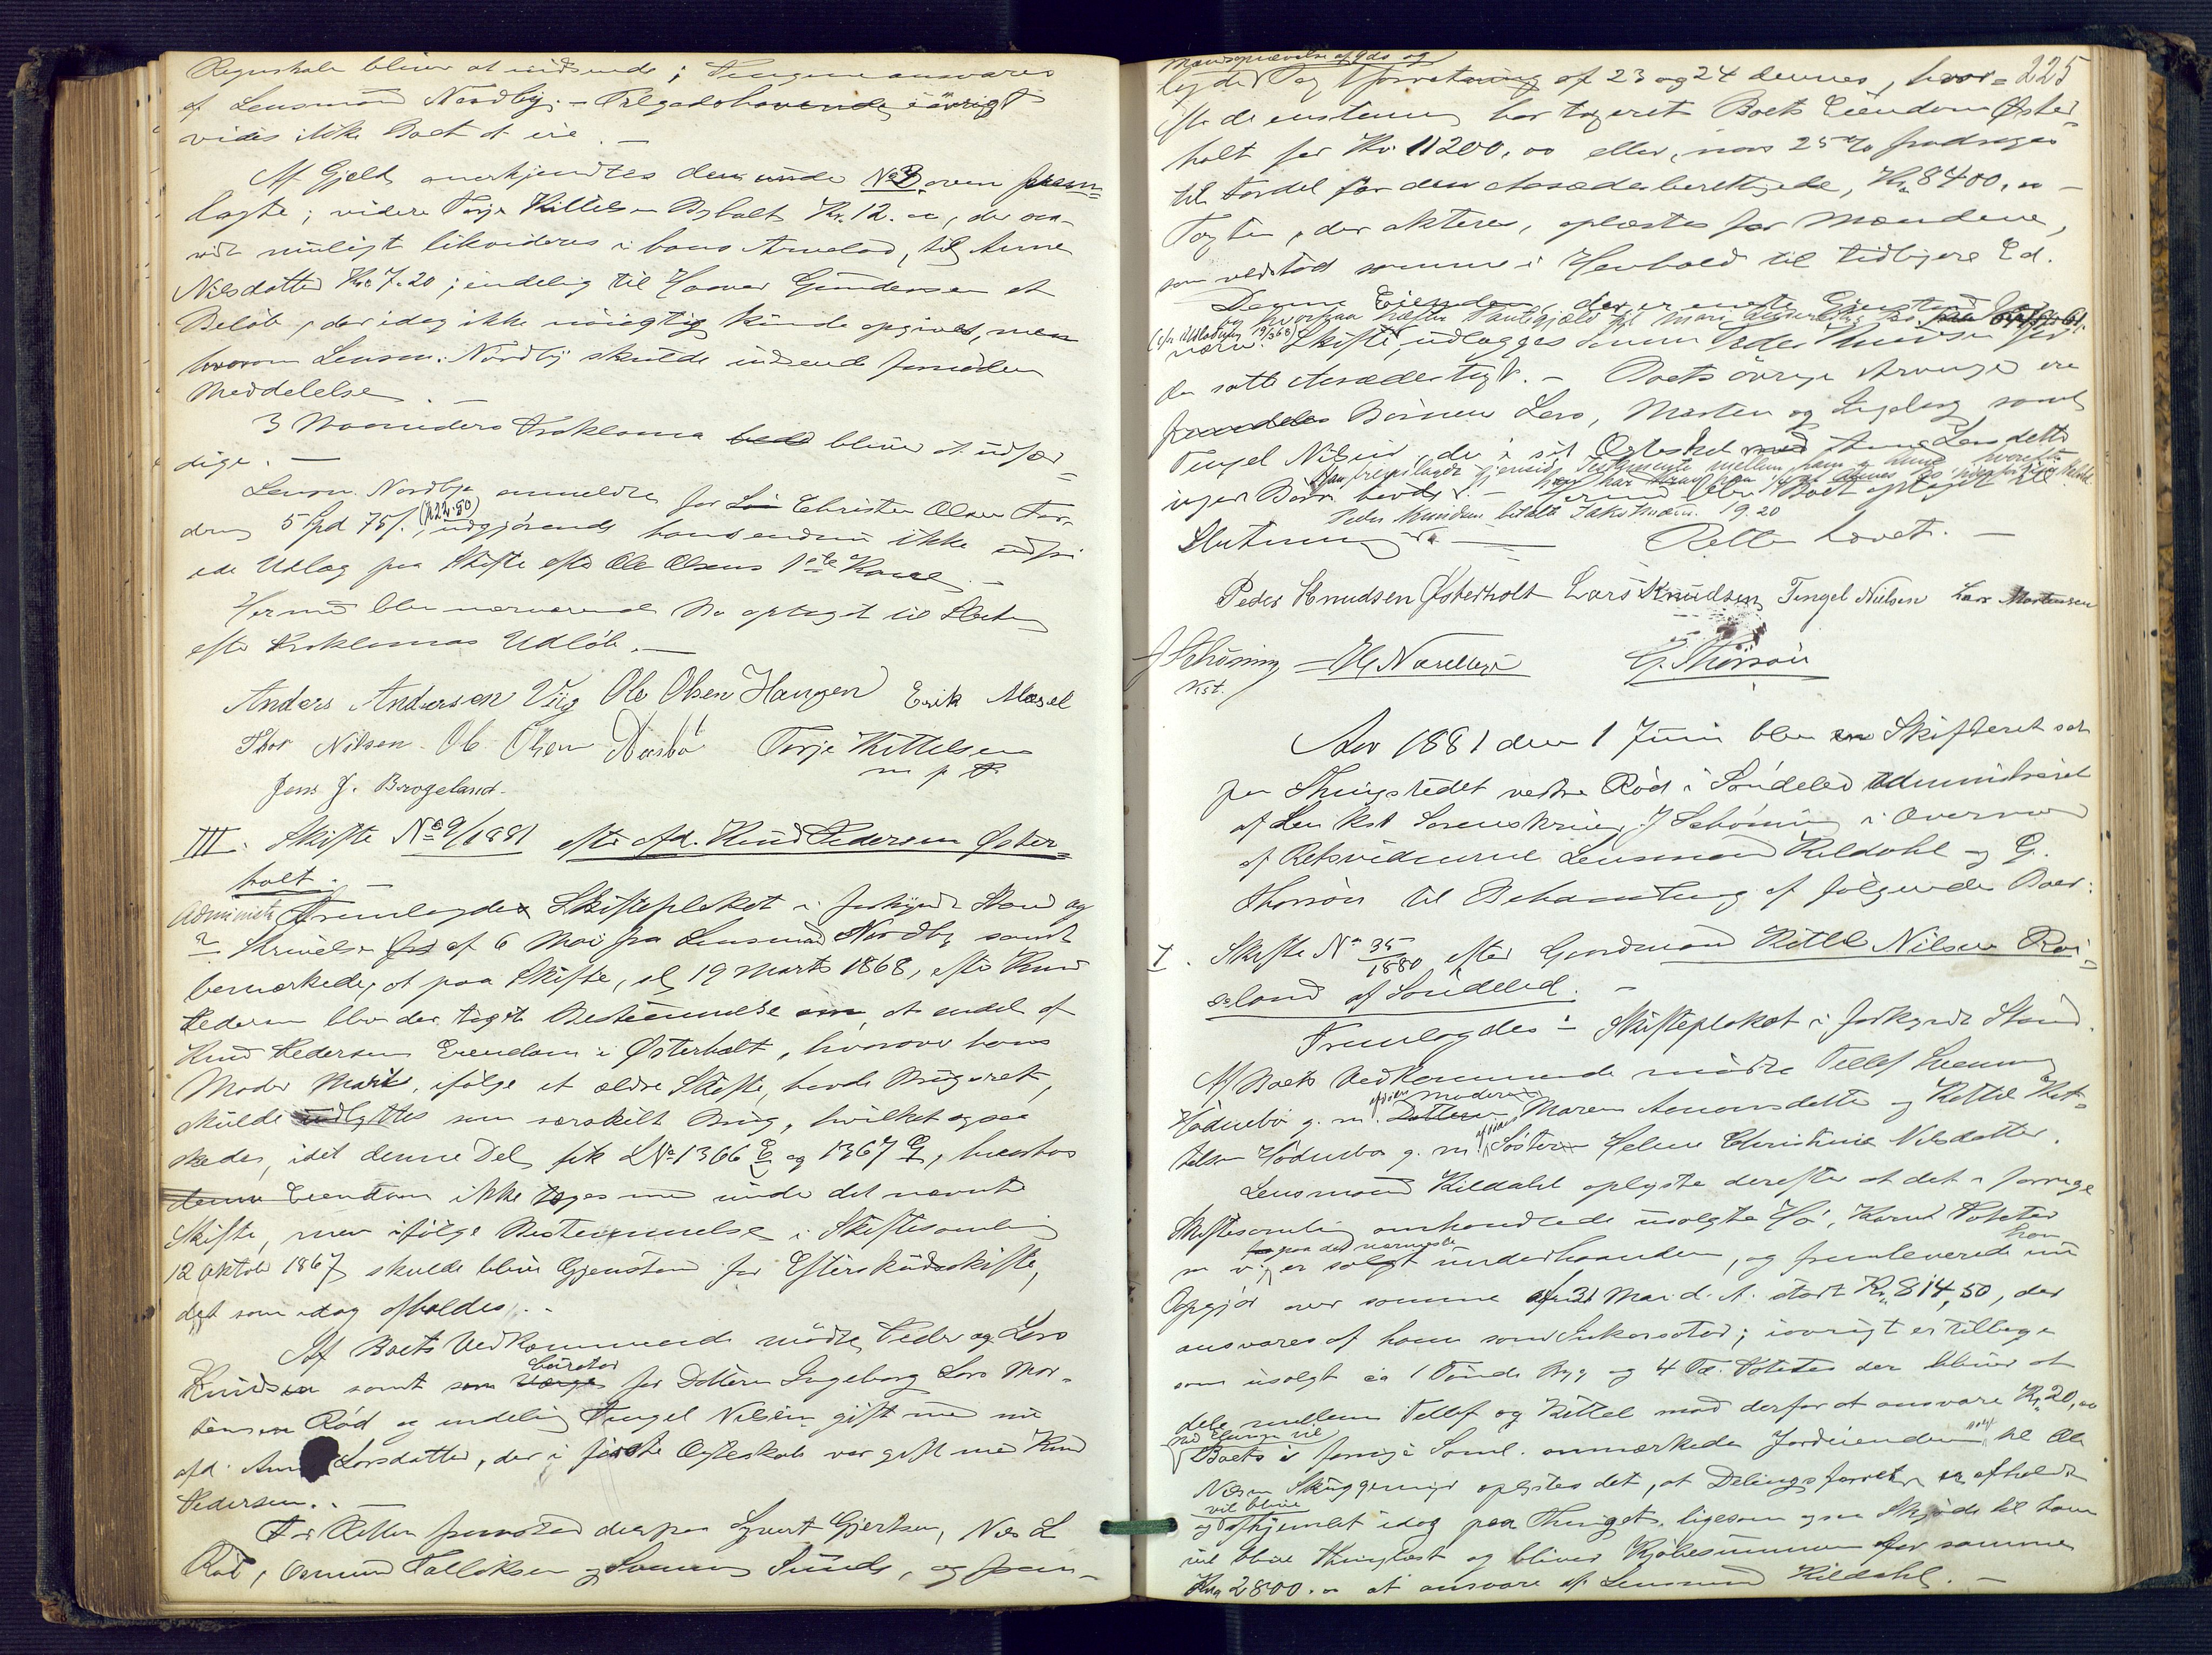 Regnskab bliver at indsende; Pengene ansvares
af Lensmand Nordby. – Tilgodehavende iøvrigt
vides ikke Boet at eie. –
Af Gjeld anerkjendtes den under No 2 oven frem-
lagte; videre Terje Kittelsen Dybvalt Kr. 12.00, der saa-
vidt muligt likvideres i hans Arvelod, til Anne
Nilsdatter Kr. 7.20; endelig til Haaver Gundersen et
Beløb, der idag ikke nøiagtig kunde opgives, men
hvorom Lensm. Nordby skulde indsende fornøden
Meddelelse. –
3 Maaneders Proklama bliver at udfær-
dige. –
Lensm. Nordby anmeldte for Christen Olsen
5 Spd 75 s. (Kr 22.50), udgjørende hans endnu ikke
ede Udlæg paa Skifte efter Ole Olsens 1ste Kone. –
Hermed blev nærværende Bo optaget til Slutning
efter Proklamas Udløb. –
Anders Andersen Viig Ole Olsen Haugen Erik Mæsel
Thor Nilsen. Ole Olsen Terje Kittelsen
m p P
Jens J. Brogeland.
III. Skifte No 9/1881 efter afd. Knud Pedersen Øster-
holt. –
Administr Fremlagdes Skifteplakat i forkyndt Stand og
Skrivelse af 6 Mai fra Lensmand Nordby samt
bemærkede, at paa Skifte, sl. 19 Marts 1868, efter Knud
Pedersen blev der taget Bestemmelse om, at endel af
Knud Pedersens Eiendom i Østerholt, hvorover hans
Moder Mari, ifølge et ældre Skifte, havde Brugsret,
skulde udlyttes som særskilt Brug, hvilket ogsaa
skede, idet denne Del fik LNo 1366 E og 1367 G, hvorhos
denne Eiendom ikke toges med under det nævnte
Skifte, men ifølge Bestemmelse i Skiftesamling
12 Oktober 1867 skulde blive Gjenstand for Efterskudsskifte,
det som idag afholdes. –
Af Boets Vedkommende mødte Peder og Lars
Knudsen samt som Værge Kurator for Datteren Ingeborg Lars Mor-
tensen Rød og endelig Tengel Nilsen gift med nu
afd. Anne Larsdatter, der i første Ægteskab var gift med Knud
Pedersen. –
For Retten fremstod derpaa Syvert Gjertsen, Næs L
Rød, Osmund Tallaksen og Sunde, og frem-
225
Mandsopnævnelse af 9 ds og
lagde Taxtforretning af 23 og 24 dennes, hvor-
efter de enstemmig har taxeret Boets Eiendom Øster-
holt for Kr. 11200,00 eller, naar 25 % fradrages
til Fordel for den Aasædesberettigede, Kr. 8400,00 –
Taxten, der akteres, oplæstes for Mændene,
som vedstod samme i Henhold til tidligere Ed.
Denne Eiendom, der er eneste Gjenstand for
og hvorpaa hæfter Pantegjæld til Mari
(cfr Udlodning 19/3 68)
nærv. Skifte, udlægges Sønnen Peder Knudsen for
den satte Aasædestaxt. – Boets øvrige Arvinger ere
Børnene Lars, Marten og Ingeborg samt
Tengel Nilsen, der i sit Ægteskab med Anne Larsdatter
Han fremlagde gjensidig Testamente mellem ham og Anne
ingen Børn havde. – Hermed blev Boet optaget til
Peder Knudsen betalte Takstmænd. 19.20
Slutning. – Retten hævet. –
Peder Knudsen Østerholt Lars Knudsen, Tengel Nielsen Lars Mortensen
J Schøning Ole Nordby G. Thorsøn
Kst.
Aar 1881 den 1 Juni blev Skifteret sat
paa Thingstedet vestre Rød i Søndeled administreret
af den Kst Sorenskriver J Schøning i Overvær
af Retsvidnerne Lensmand Kildahl og G.
Thorsøn til Behandling af følgende Boer:
I. Skifte No 35/1880 efter Gaardmand Kittel Nilsen Røi-
seland af Søndeled. –
Fremlagdes: Skifteplakat i forkyndt Stand.
Af Boets Vedkommende mødte Tellef
Hødnebø g. m. Datteren afdødes Moder, Maren Aanonsdatter og Kittel Kit-
telsen Hødnebø g. m. afdødes Søster Helene Christine Nilsdatter.
Lensmand Kildahl oplyste derefter at det i forrige
Skiftesamling omhandlede usolgte Hø, Korn, Poteter
m v. paa det nærmeste er solgt underhaanden, og fremleverede han nu
Opgjør over samme af 31 Mai d. A. stort Kr. 814,50, der
ansvares af ham som Inkassator; iøvrigt er tilbage
som usolgt ca 1 Tønde Byg og 4 Td. Poteter der bliver at
dele mellem Tellef og Kittel mod derfor at ansvare Kr. 20,00
Med Hensyn til
Boets i forrige Saml. anmærkede Jordeiendom til Ole
Nilsen Skuggemyr oplystes det, at Delingsforretn. er afholdt
vil blive
og afhjemlet idag paa Thinget, ligesom ogsaa Skjøde til ham
vil blive thinglæst og bliver Kjøbesummen for samme
Kr. 2800.00 at ansvare af Lensmand Kildahl. –